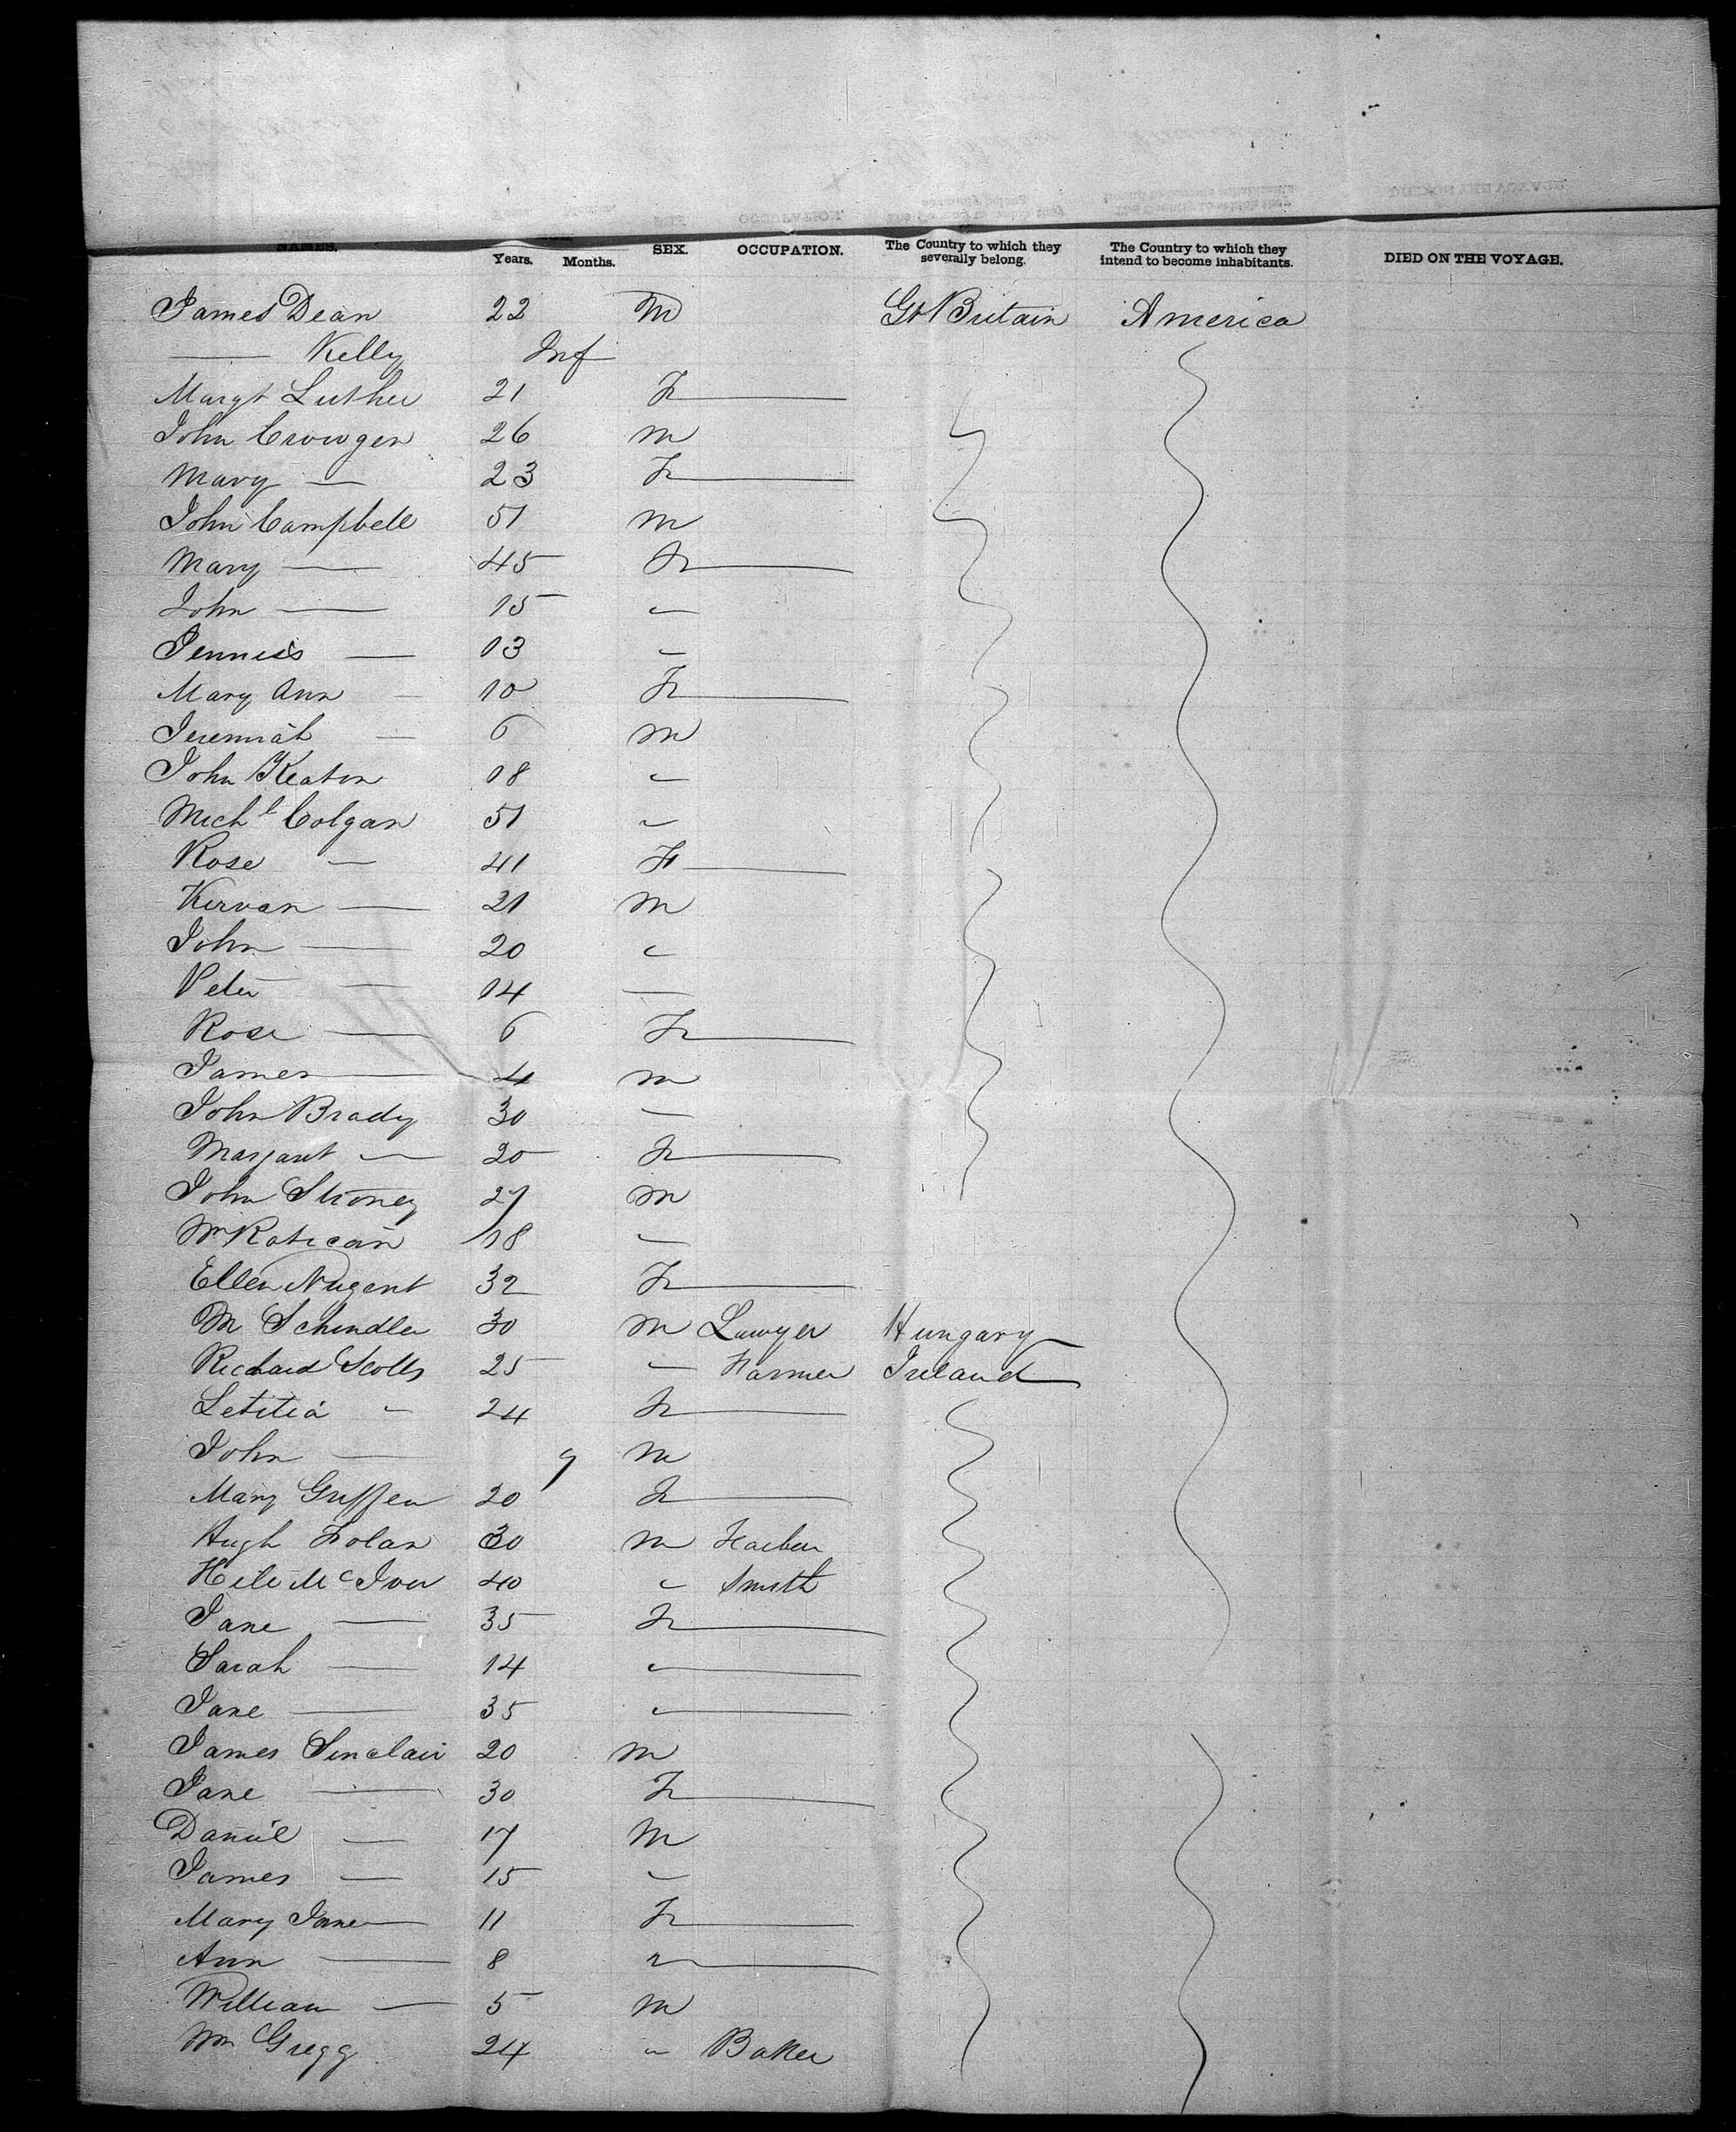 NAMES. Years. Months. SEX. OCCUPATION. The Country to which they severally belong. The Country to which they intend to become inhabitants. DIED ON THE VOYAGE.
James Dean 22 M Gt Britain America
—— Kelly Inf
Margt Luther 21 F
John 26 m
Mary — 23 F
John Campbell 51 m
Mary — 45 F
John — 15 "
13 "
Mary Ann — 10 F
Jeremiah — 6 m
John Keaton 18 "
Michl Colgan 51 "
Rose — 41 F
Kervan — 21 m
John — 20 "
Peter — 14 —
Rose — 6 F
James — 4 m
John Brady 30 —
Margaret — 20 F
John Stroney 27 m
Wm Ratican 18 —
Ellen Nugent 32 F
M Schindler 30 m Lawyer Hungary
Richard Scotts 25 " Farmer Ireland
Letitia " 24 F
John — 9 m
Mary Griffen 20 F
Hugh Folan 30 m
McIver 40 " Smith
Jane — 35 F
Sarah — 14 "
Jane — 35 "
James Sinclair 20 m
Jane — 30 F
Daniel — 17 M
James — 15 "
Mary Jane — 11 F
Ann — 8 "
William — 5 m
Wm Gregg 24 " Baker